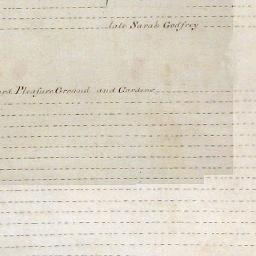 late Sarah Godfrey
Pleasure Ground and Gardens